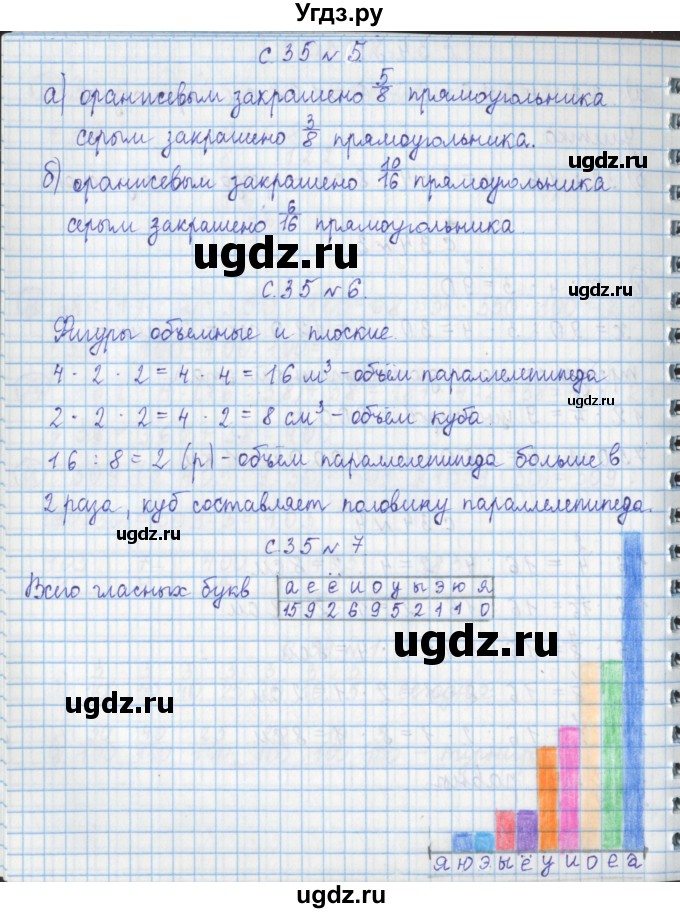 Угдз.ру
с.35 №5.
а) оранжевым закрашено 5/8 прямоугольника
серым закрашено 3/8 прямоугольника.
ugdz.ru
б) оранжевым закрашено 10/16 прямоугольника
серым закрашено 6/16 прямоугольника
ugdz.ru
с.35 №6.
Фигуры объемные и плоские.
4 · 2 · 2 = 4 · 4 = 16 м³ - объём параллелепипеда
ugdz.ru
2 · 2 · 2 = 4 · 2 = 8 см³ - объём куба
16 : 8 = 2 (р) - объём параллелепипеда больше в
2 раза, куб составляет половину параллелепипеда.
ugdz.ru
с.35 № 7
Всего гласных букв
а е ё и о у ы э ю я
15 9 2 6 9 5 2 1 1 0
ugdz.ru
ugdz.ru
я ю э ы ё у и о е а
ugdz.ru